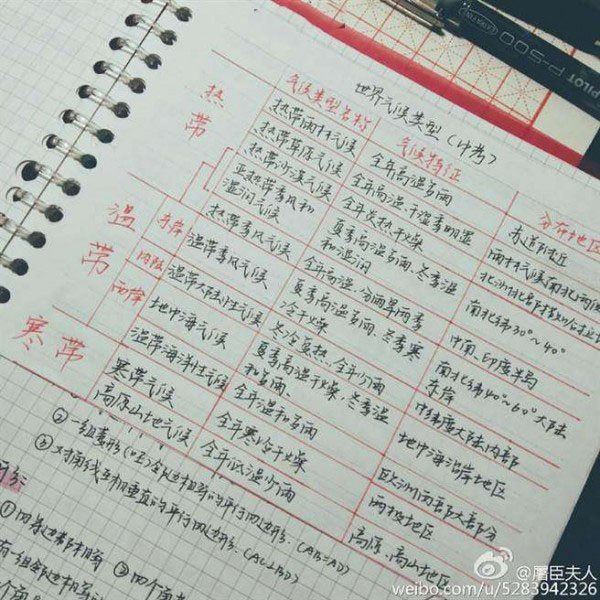 世界气候类型(中考)
气候类型名称 气候特征 分布地区
热带
热带雨林气候 全年高温多雨 赤道附近
热带草原气候 全年高温,干湿季明显 雨林气候南北两侧
热带沙漠气候 全年炎热干燥
亚热带季风和湿润气候 夏季高温多雨、冬季温和湿润 南北纬30°~40°
热带季风气候 全年高温,分雨旱两季 中南、印度半岛
温带
东岸 温带季风气候 夏季高温多雨、冬季寒冷干燥 南北纬40°~60°大陆东岸
内陆 温带大陆性气候 冬冷夏热、全年少雨 中纬度大陆内部
西岸 地中海气候 夏季高温干燥、冬季温和多雨、 地中海沿岸地区
温带海洋性气候 全年温和多雨 欧洲西部大部分
寒带
寒带气候 全年寒冷干燥 两极地区
高原山地气候 全年低温少雨 高原、高山地区
②一组菱形
③对角线互相垂直的平行四边形:(AC⊥BD)
①四条边都相等
PILOT P-500
@屠臣夫人
weibo.com/u/5283942326